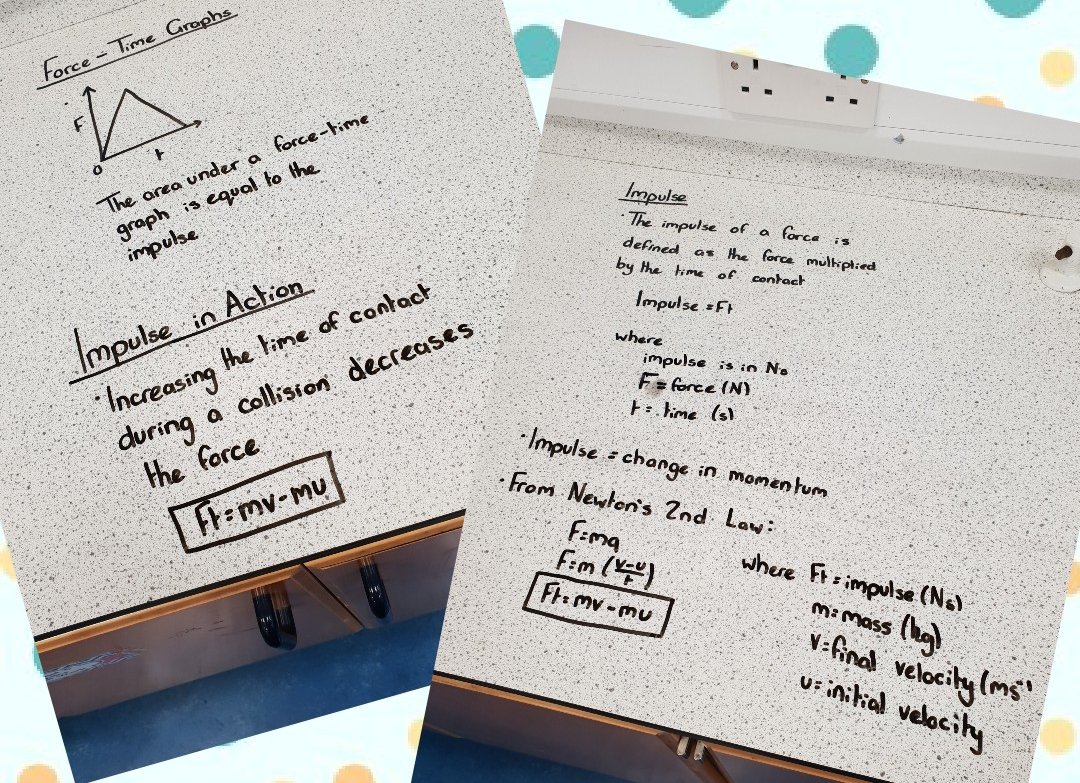 Force - Time Graphs
F
0
t
The area under a force-time
graph is equal to the
impulse
Impulse in Action
· Increasing the time of contact
during a collision decreases
the force
Ft = mv - mu
Impulse
· The impulse of a force is
defined as the force multiplied
by the time of contact
Impulse = Ft
where
impulse is in Ns
F = force (N)
t = time (s)
· Impulse = change in momentum
· From Newton's 2nd Law:
F=ma
F=m (v-u/t)
Ft = mv - mu
where Ft = impulse (Ns)
m = mass (kg)
v = final velocity (ms⁻¹
u = initial velocity